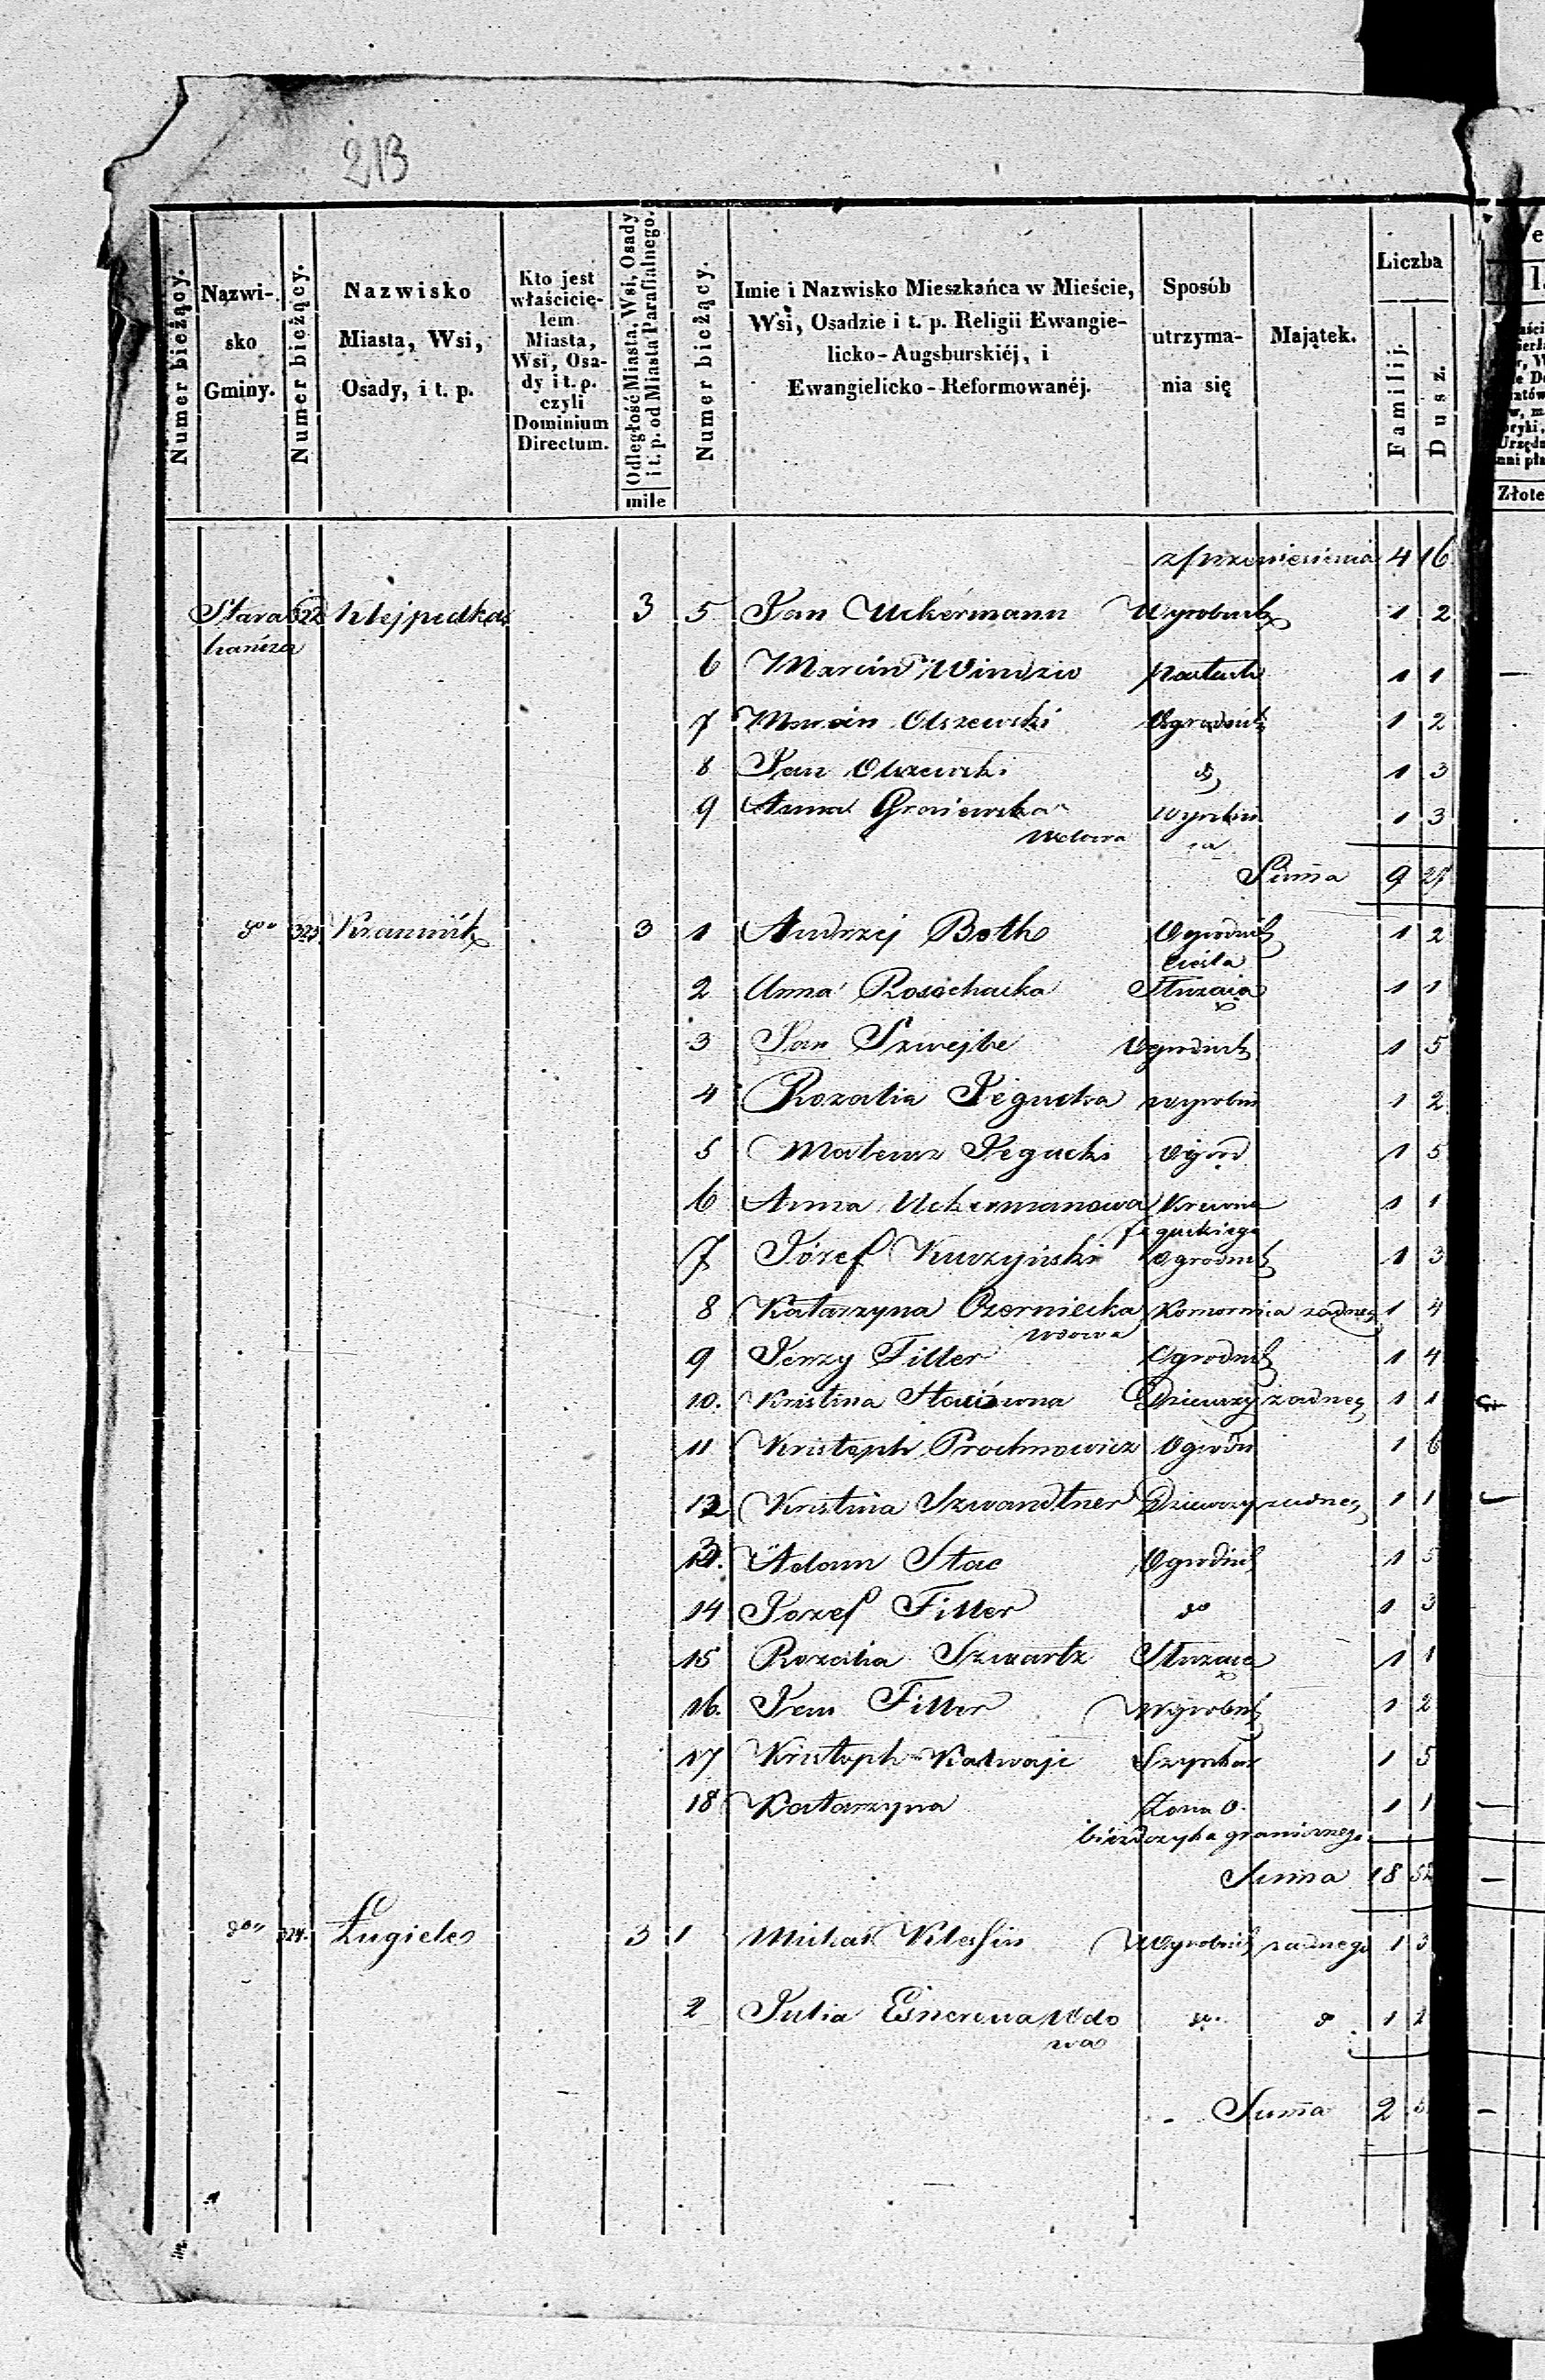 213
Numer bieżący.
Nazwi-
sko
Gminy.
Numer bieżący.
Nazwisko
Miasta, Wsi,
Osady, i t. p.
Kto jest
właścicie-
lem
Miasta,
Wsi, Osa-
dy i t. p.
czyli
Dominium
Directum.
Odległość Miasta, Wsi, Osady
i t. p. od Miasta Parafialnego.
mile
Numer bieżący.
Imie i Nazwisko Mieszkańca w Mieście,
Wsi, Osadzie i t. p. Religii Ewangie-
licko-Augsburskiéj, i
Ewangielicko-Reformowanéj.
Sposób
utrzyma-
nia się
Majątek.
Liczba
Familij.
Dusz.
Złote
z przeniesienia 4 16
Stara 322 Klejpedka 3 5 Jan Uckermann Wyrobnik 1 2
hańcza
6 Marcin 1 1
7 Marcin Olszewski Ogrodnik 1 2
8 Jan Olszewski do 1 3
9 Anna Wyrobni 1 3
Wdowa ca
Summa 9 27
do 323 3 1 Andrzej Both Ogrodnik 1 2
Cieśla
2 Anna Rosochacka Służąca 1 1
3 Jan Szwejke Ogrodnik 1 5
4 Rozalia Jegucka wyrobni 1 2
5 Mateusz Jegucki Ogrod 1 5
6 Anna Uckermanowa Krewna 1 1
Jeguckiego
7 Józef Kuczyński Ogrodnik 1 3
8 Katarzyna Czerniecka Komornica żadneg 1 4
wdowa
9 Jerzy Filler Ogrodnik 1 4
10. Kristina Stacówna Dziewczy żadneg 1 1
11 Kristoph Prochnowicz Ogrodn 1 6
12 Kristina Szwandtner Dziewczy żadneg 1 1
13. Adam Stac Ogrodnik 1 5
14 Jozef Filler do 1 3
15 Rozalia Szwartz Służąca 1 1
16. Jan Filler Wyrobnik 1 2
17 Kristoph Kalwajc Szynkarz 1 5
18 Katarzyna Żona O- 1 1
bieżdczyka granicznego
Summa 18 52
do 324. Ługiele 3 1 Wyrobnik żadnego 1 3
2 Julia Wdo 1 2
wa
Summa 2 5